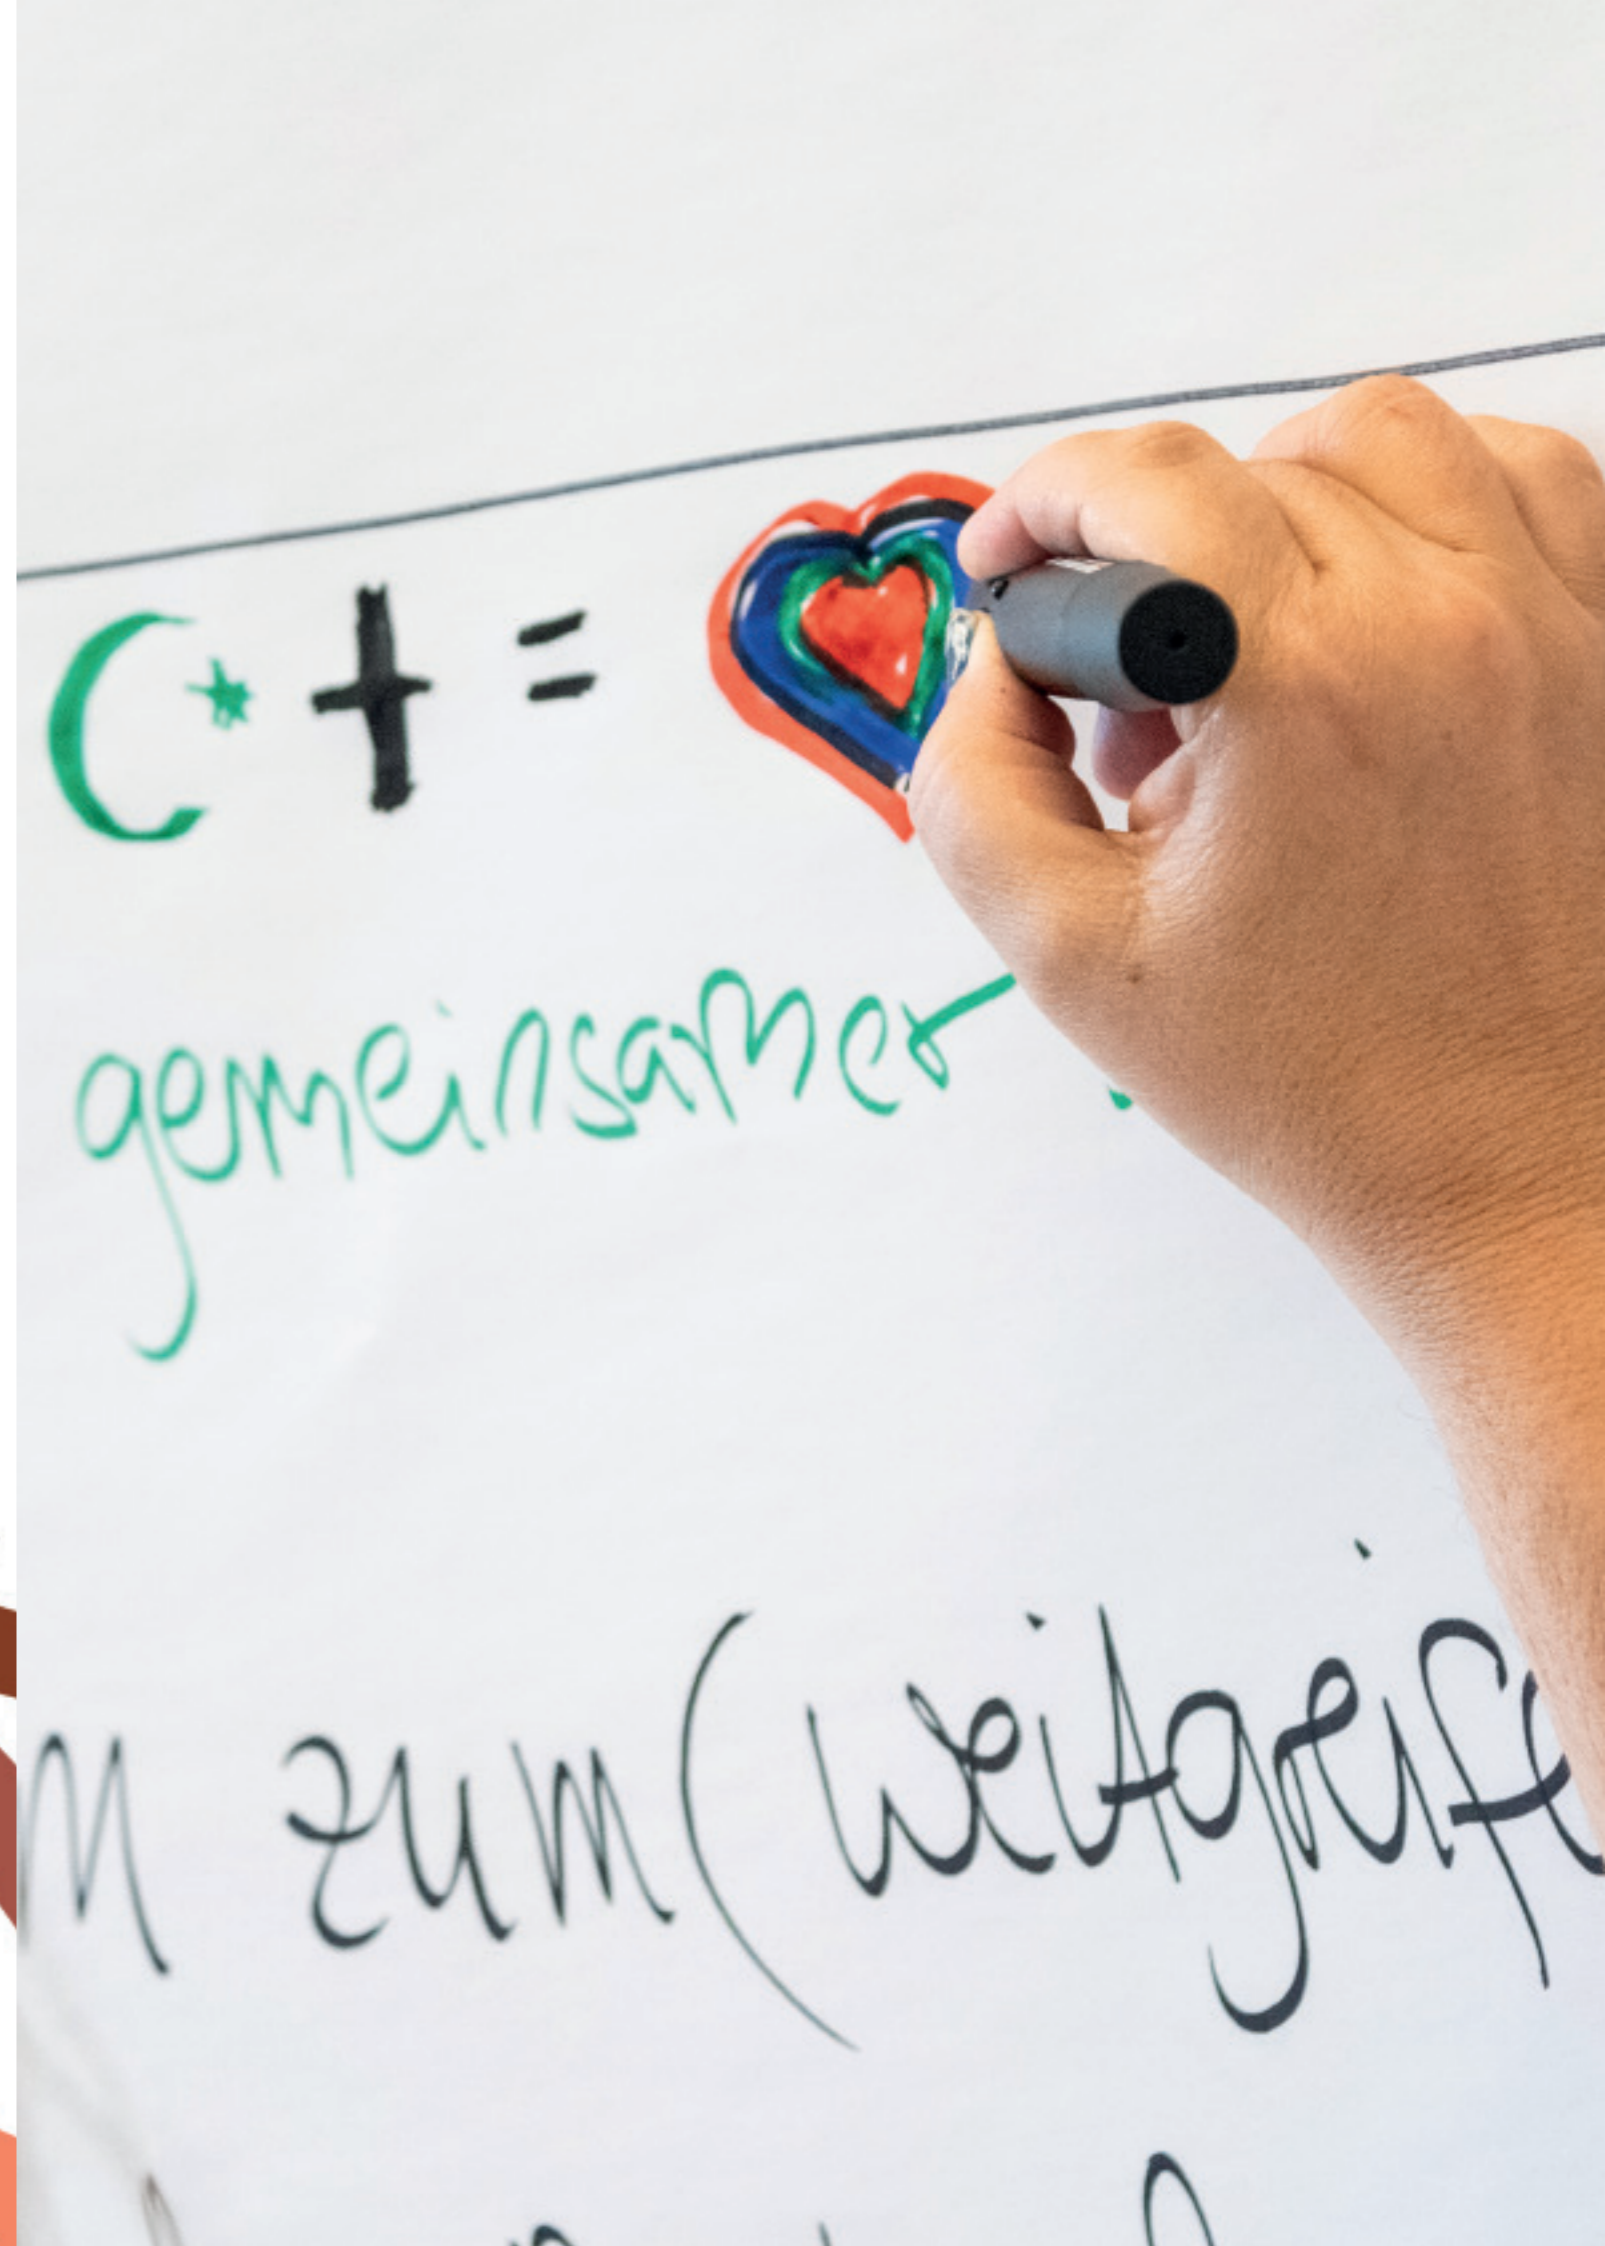 ☪ † =
gemeinsamer
zum (weitgreife